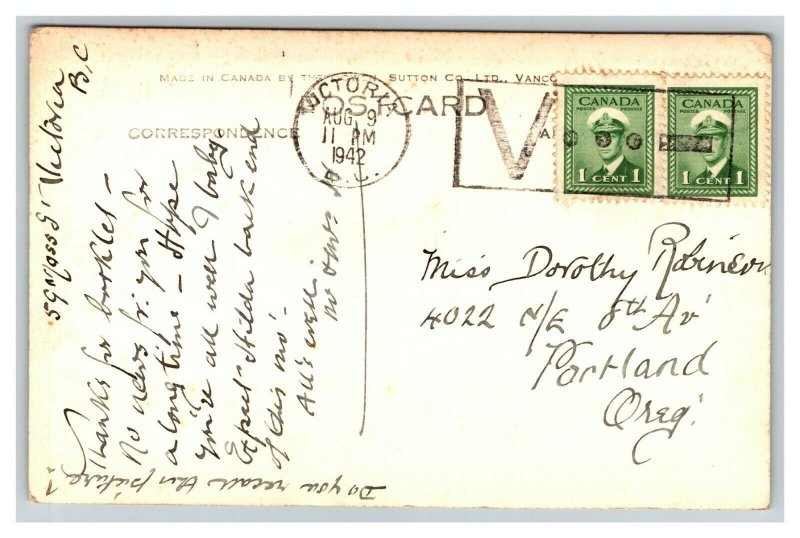 MADE IN CANADA BY THE SUTTON CO., LTD., VANCO
POSTCARD
CORRESPONDENCE
VICTORIA
AUG 9
11 PM
1942
B.C.
V
CANADA
POSTES POSTAGE
1 CENT 1
CANADA
POSTES POSTAGE
1 CENT 1
59 Moss St Victoria
B,C
Thanks for booklet –
No news fr. you for
a long time – Hope
you're all well & baby
Expect Hilda back end
of this mo'–
All's well.
Do you recall this picture?
Miss Dorothy Robinson
4022 N/E 8th Av'
Portland
Oreg.